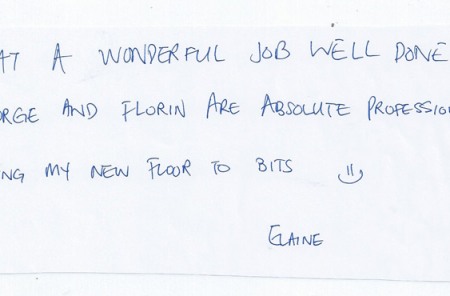 AT A WONDERFUL JOB WELL DONE
ORGE AND FLORIN ARE ABSOLUTE PROFESSION
NG MY NEW FLOOR TO BITS
ELAINE